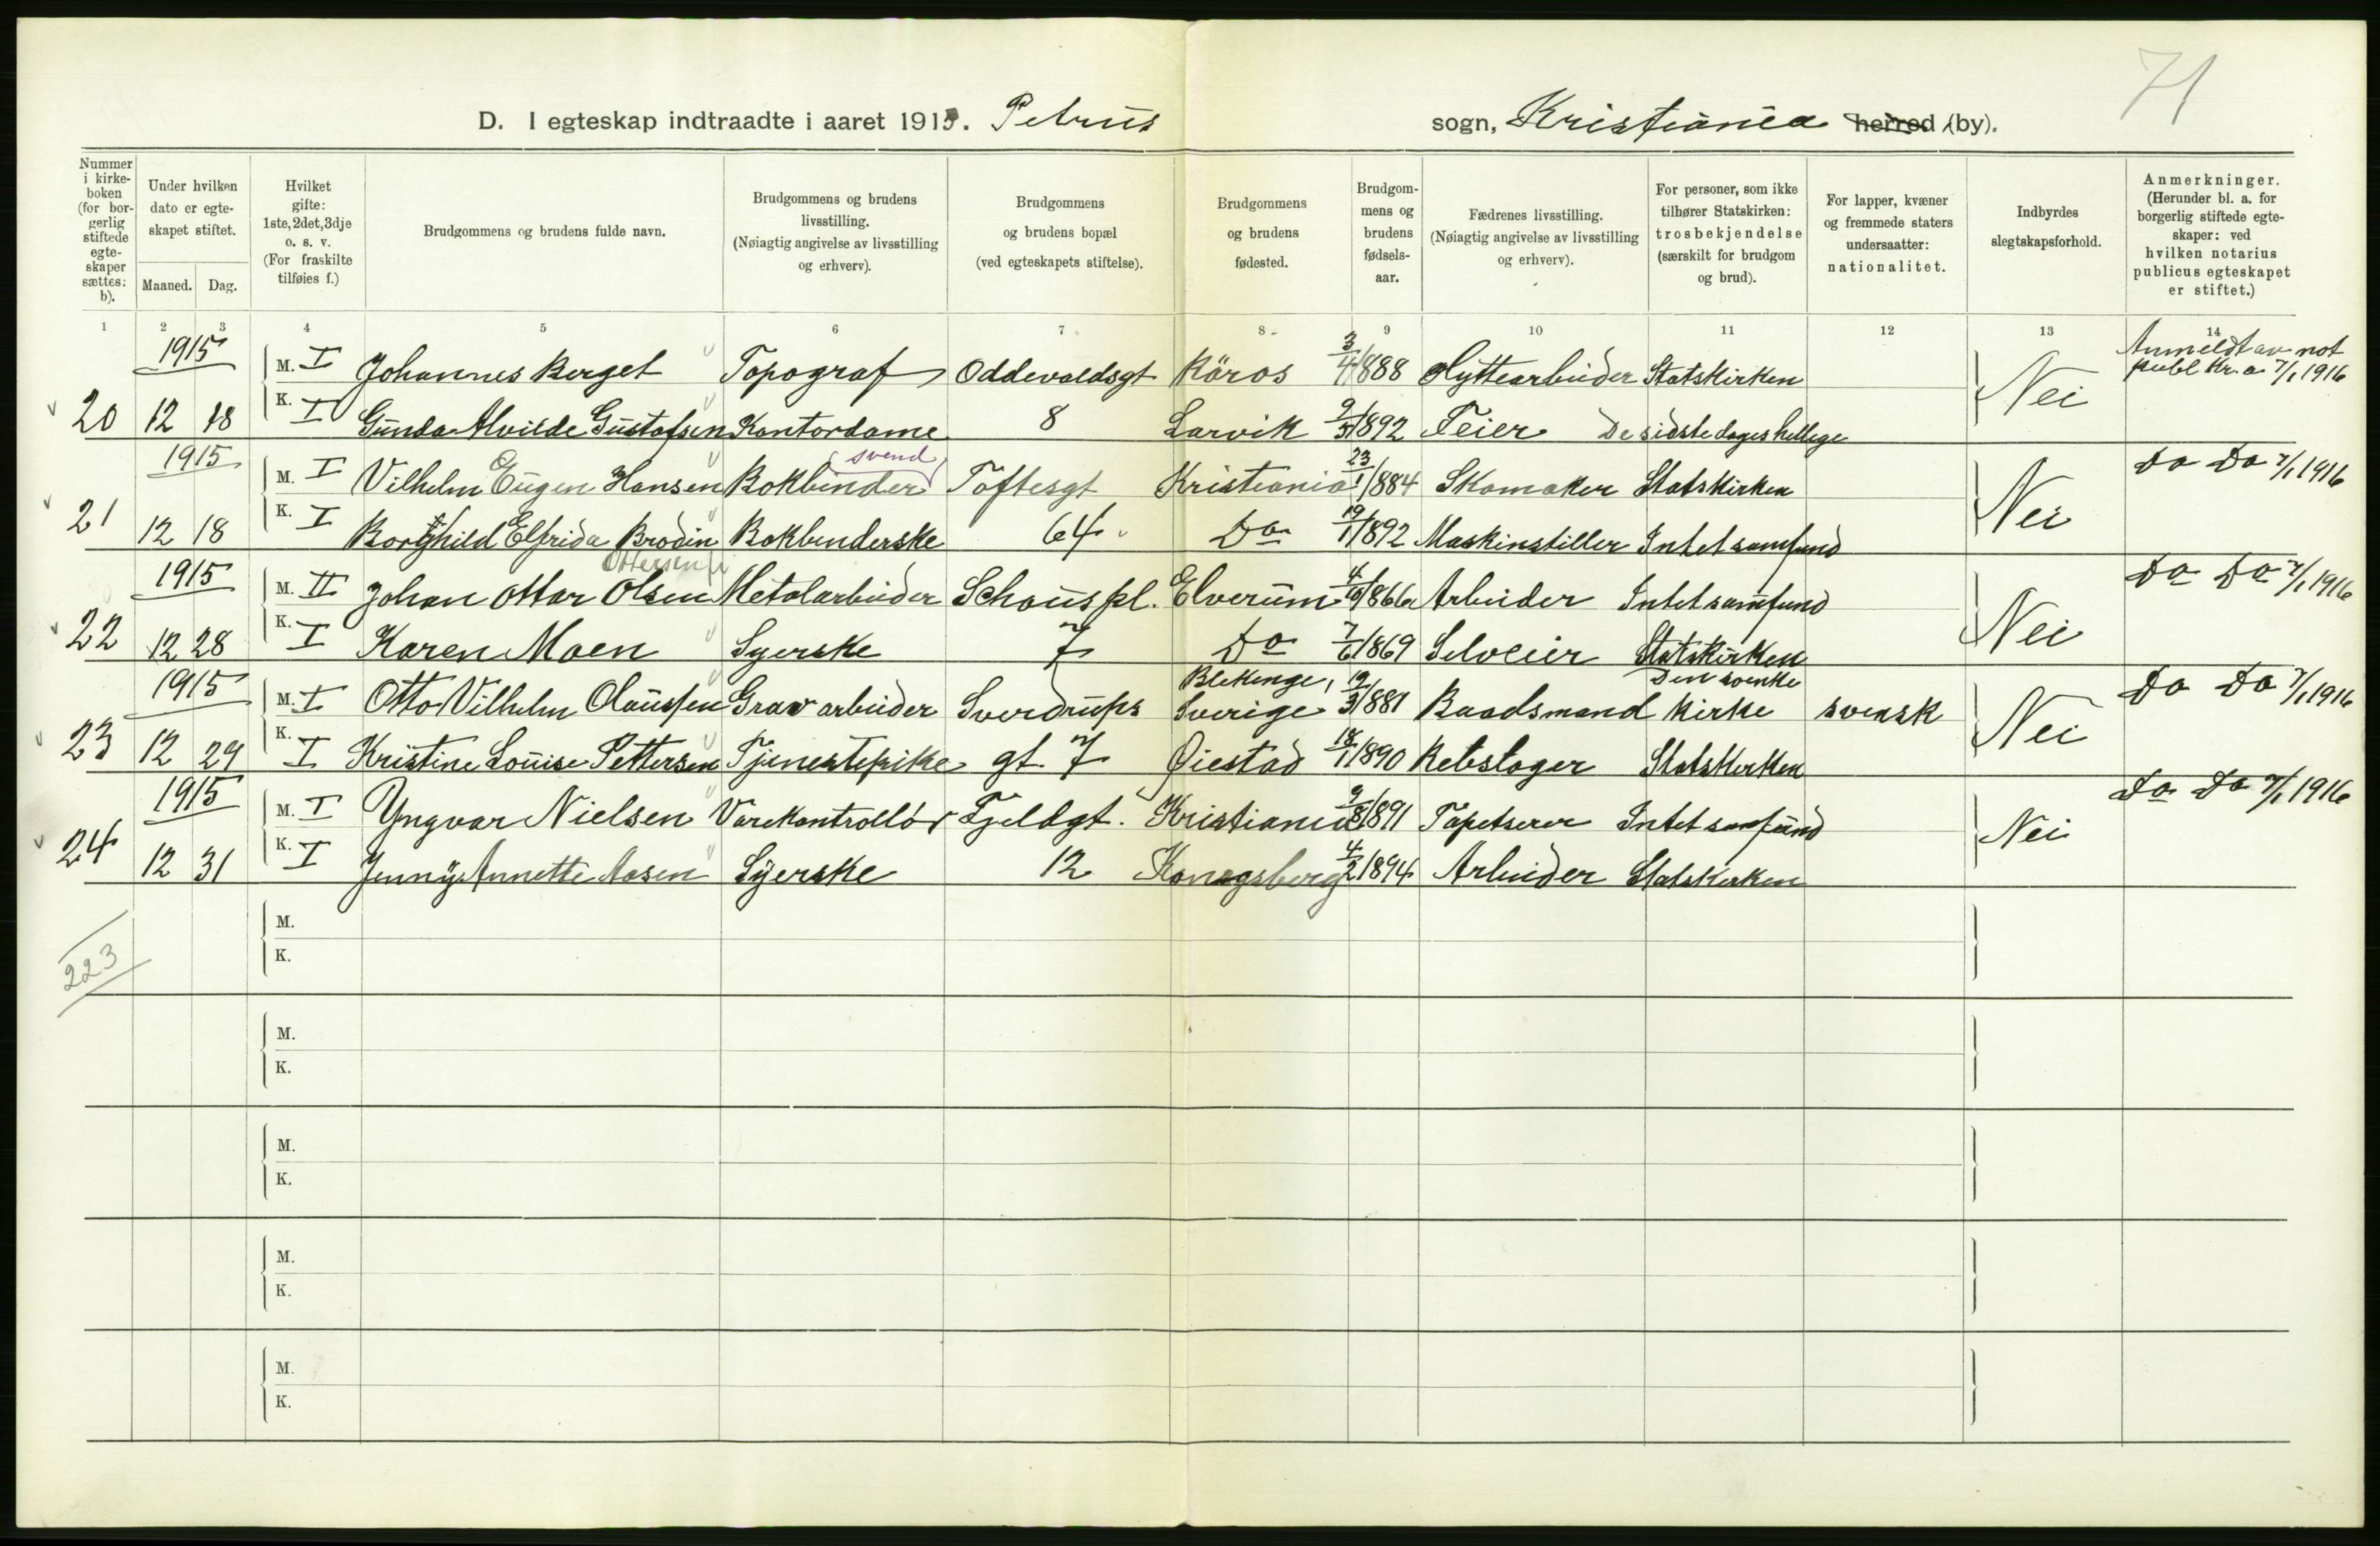 71
D. I egteskap indtraadte i aaret 1915. Petrus sogn, Kristiania herred (by).
Nummer i kirkeboken (for borgerlig stiftede egteskaper sættes: b).
Under hvilken dato er egteskapet stiftet.
Maaned. Dag.
Hvilket gifte: 1ste, 2det, 3dje o. s. v. (For fraskilte tilføies f.)
Brudgommens og brudens fulde navn.
Brudgommens og brudens livsstilling. (Nøiagtig angivelse av livsstilling og erhverv).
Brudgommens og brudens bopæl (ved egteskapets stiftelse).
Brudgommens og brudens fødested.
Brudgommens og brudens fødselsaar.
Fædrenes livsstilling. (Nøiagtig angivelse av livsstilling og erhverv).
For personer, som ikke tilhører Statskirken: trosbekjendelse (særskilt for brudgom og brud).
For lapper, kvæner og fremmede staters undersaatter: nationalitet.
Indbyrdes slegtskapsforhold.
Anmerkninger. (Herunder bl. a. for borgerlig stiftede egteskaper: ved hvilken notarius publicus egteskapet er stiftet.)
1 2 3 4 5 6 7 8 9 10 11 12 13 14
1915 M. I Johannes Berget Topograf Oddevaldsgt Röros 3/4 1888 Hyttearbeider Statskirken Nei Anmeldt av not publ Kr.a 7/1 1916
20 12 18 K. I Gunda Alvilde Gustafsen Kontordame 8 Larvik 9/3 1892 Feier De sidste dages hellige
1915 M. I Vilhelm Eugen Hansen Bokbinder (svend) Toftesgt Kristiania 23/1 1884 Skomaker Statskirken Nei Do Do 7/1 1916
21 12 18 K. I Borghild Elfrida Brodin Bokbinderske 64 Do 19/1 1892 Maskinstiller Intet samfund
Ottersen
1915 M. II Johan Ottar Olsen Metalarbeider Schous pl. Elverum 1866 Arbeider Intet samfund Nei Do Do 7/1 1916
22 12 28 K. I Karen Moen Syerske 7 Do 7/6 1869 Selveier Statskirken
1915 M. I Otto Vilhelm Olaussen Grav arbeider Sverdrups Blekinge, Sverige 19/3 1881 Baadsmand Den svenke kirke svensk Nei Do Do 7/1 1916
23 12 29 K. I Kristine Louise Pettersen Tjenestepike gt. 7 Øiestad 18/1 1890 Rebslager Statskirken
1915 M. I Yngvar Nielsen Varekontrollör Fjeldgt. Kristiania 9/8 1891 Tapetserer Intet samfund Nei Do Do 7/1 1916
24 12 31 K. I Jenny Annette Aasen Syerske 12 Kongsberg 4/2 1894 Arbeider Statskirken
M.
223
K.
M.
K.
M.
K.
M.
K.
M.
K.